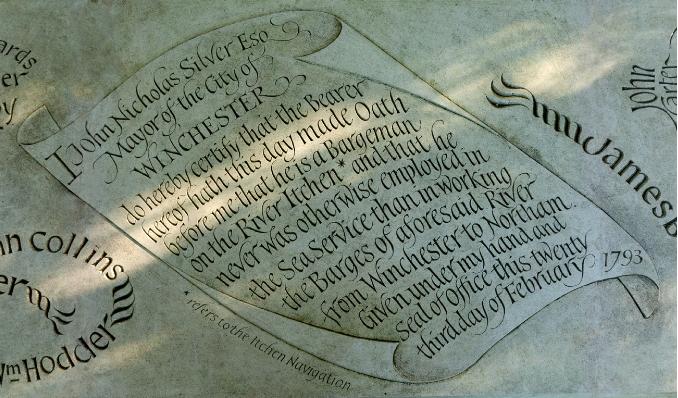 I John Nicholas Silver Esq
Mayor of the City of
WINCHESTER
do hereby certify that the Bearer
hereof hath this day made Oath
before me that he is a Bargeman
on the River Itchen* and that he
never was otherwise employed in
the Sea Service than in working
the Barges of aforesaid River
from Winchester to Northam.
Given under my hand and
Seal of Office this twenty
third day of February 1793
* refers to the Itchen Navigation
James B
John
Carter
ards
er
by
hn Collins
er
Wm Hodder